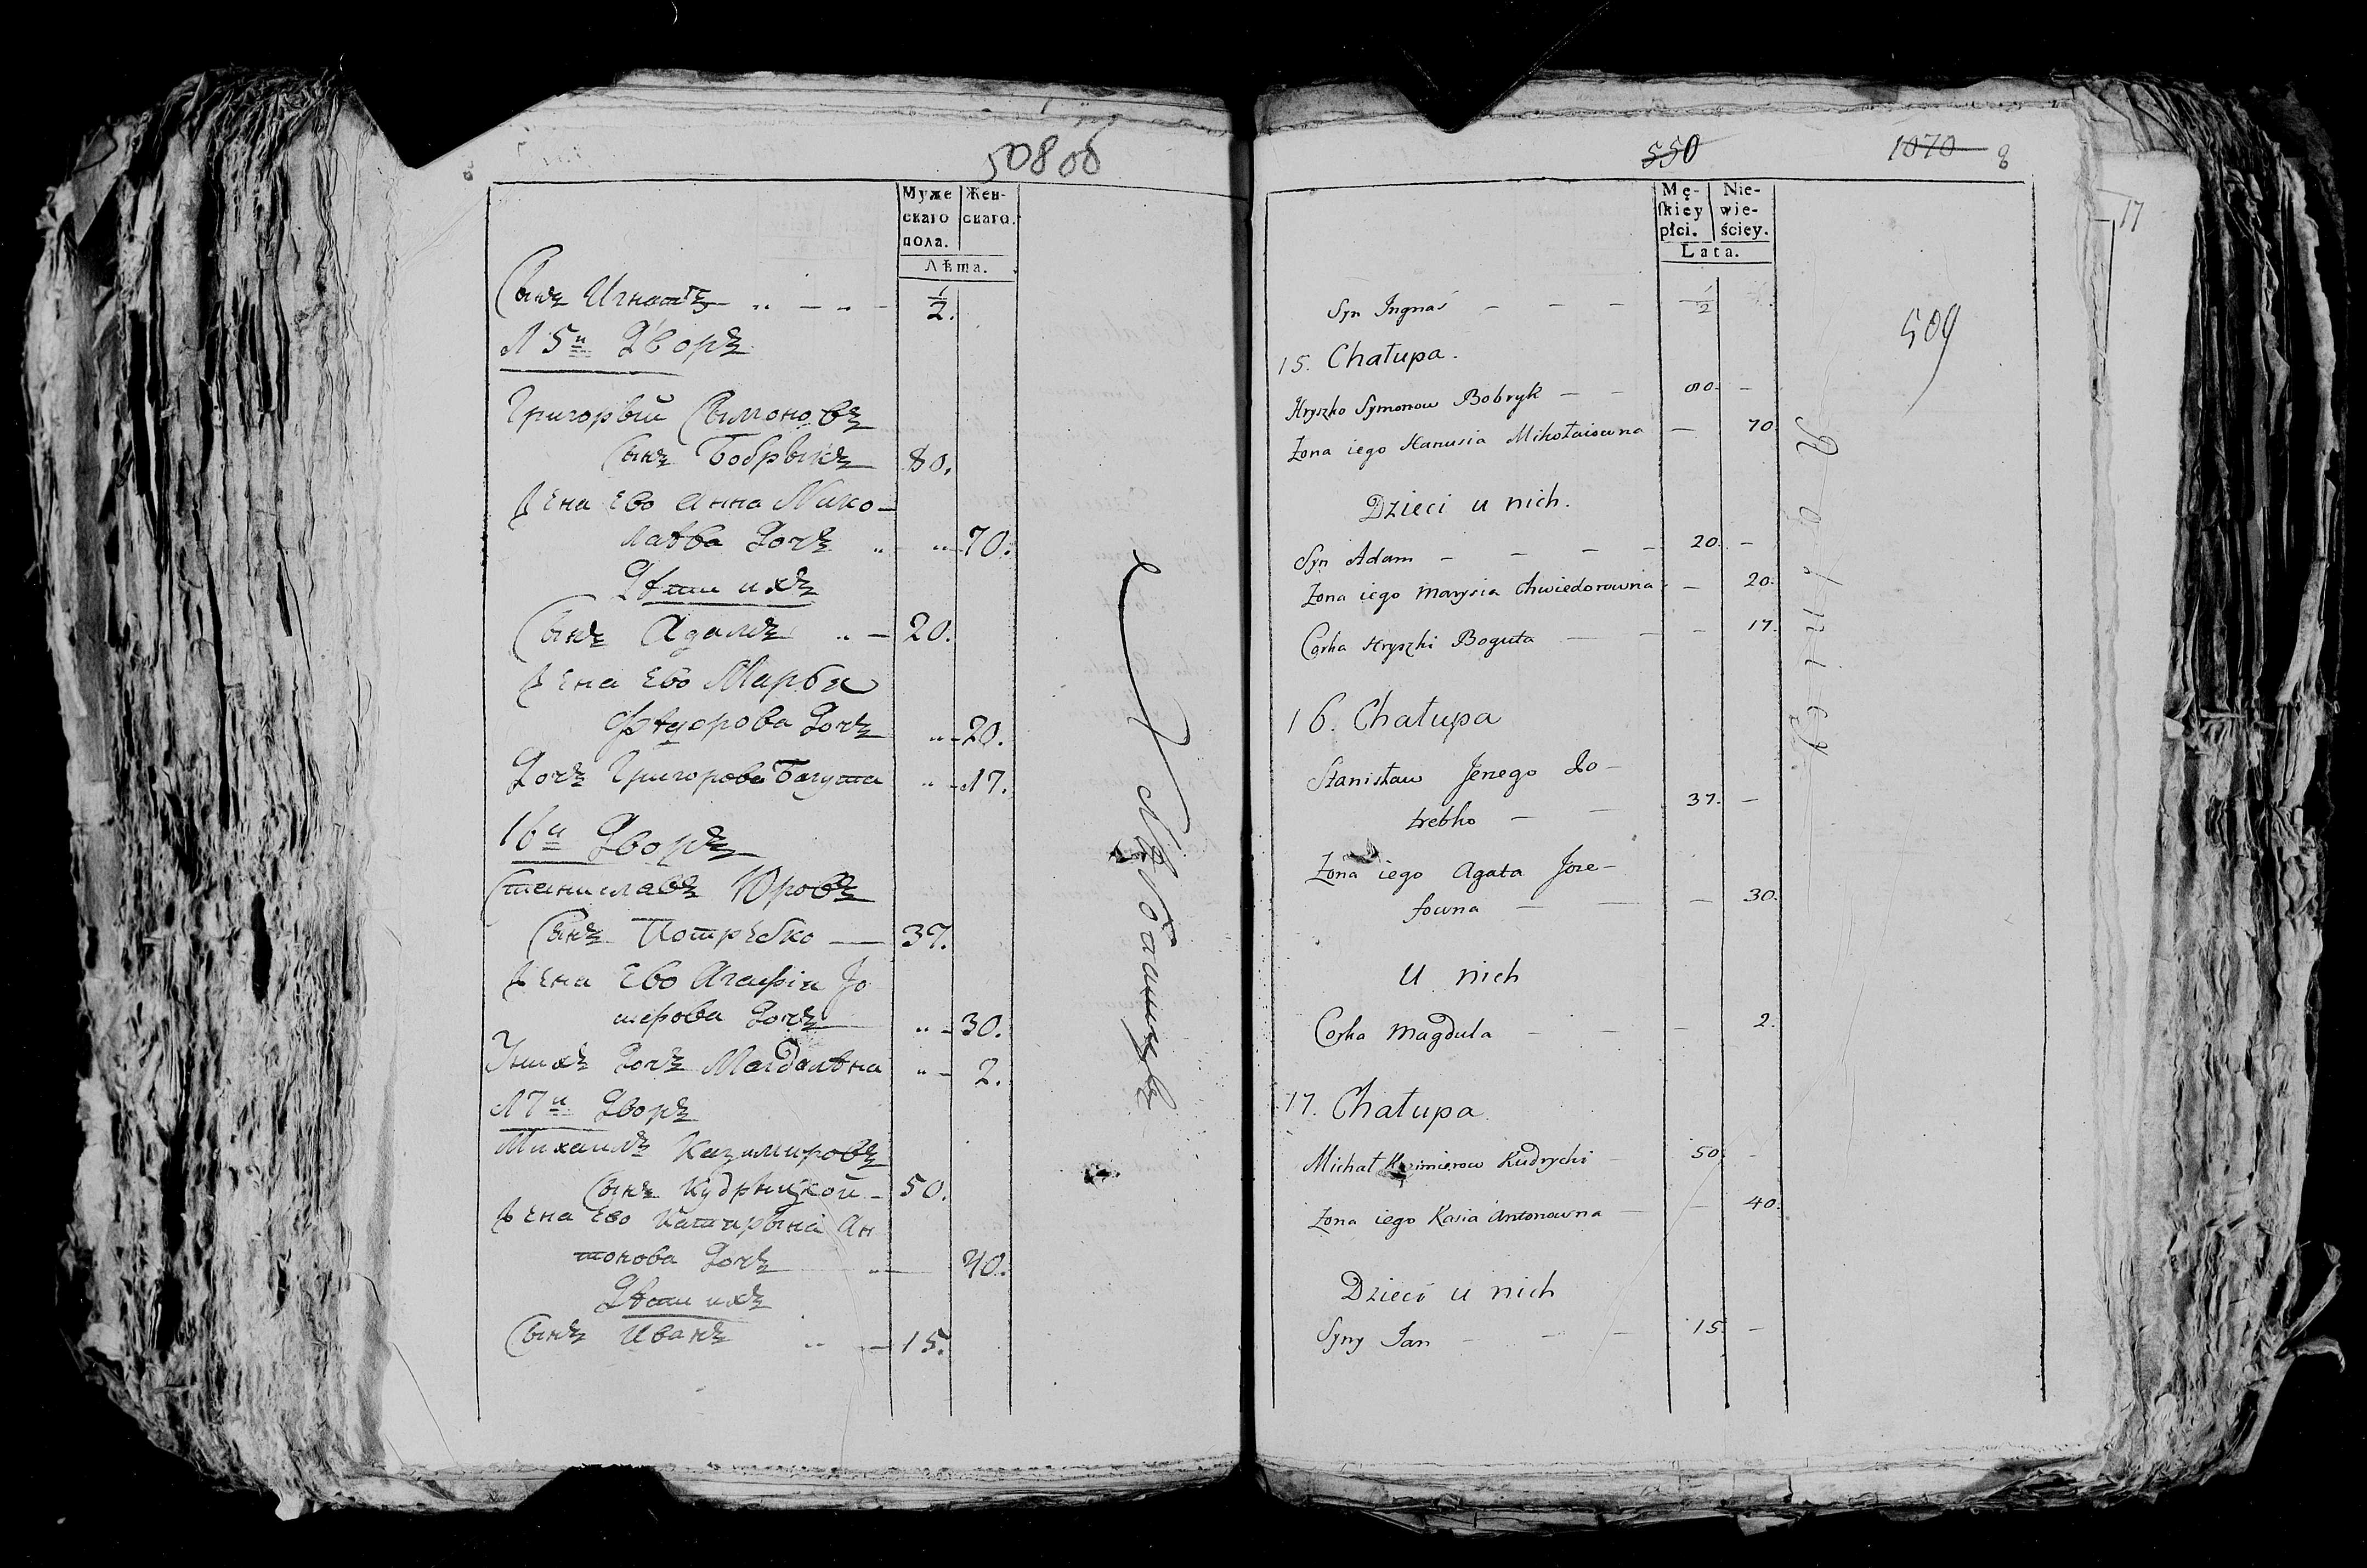 508 об
Муже
скаго
пола.
Жен-
скаго.
Лѣта.
Сынъ Игнатъ 1/2.
15й Дворъ
Григорый Сымоновъ
Сынъ Бобрыкъ 80.
Жена Ево Анна Нико-
лаева Дочь 70.
Дѣти ихъ
Сынъ Адамъ 20.
Жена Ево Марья
Фѣдорова Дочь 20.
Дочь Григорова Багута 17.
16й Дворъ
Станиславъ Юровъ
Сынъ Потребко 37.
Жена Ево Агафія
Дочь 30.
У нихъ Дочь Магдалѣна 2.
17й Дворъ
Михаилъ Казимировъ
Сынъ Кудрыцкой 50.
Жена Ево Катирына Ан
тонова Дочь 40.
Дѣти ихъ
Сынъ Иванъ 15.
550 1070 8
17
509
Mę-
skiey
płci.
Nie-
wie-
ściey.
Lata.
Syn Ingnaś — — — 1/2
15. Chałupa.
Hryszko Symonow Bobryk — — 80. —
Żona iego Hanusia Mikołaiowna — 70.
Dzieci u nich.
Syn Adam — — — — 20. —
Żona iego Marysia Chwiedorowna — 20.
Corka Hryszki Boguta — — — 17.
16. Chałupa
Stanisław Jerzego Po-
trebko — — 37. —
Żona iego Agata Joze-
fowna — — — 30.
U nich
Corka Magdula — — — 2.
17. Chałupa
Michał Kazimierow Kudrycki — 50. —
Żona iego Kasia Antonowna — — 40.
Dzieci u nich
Syny Jan — — — 15. —